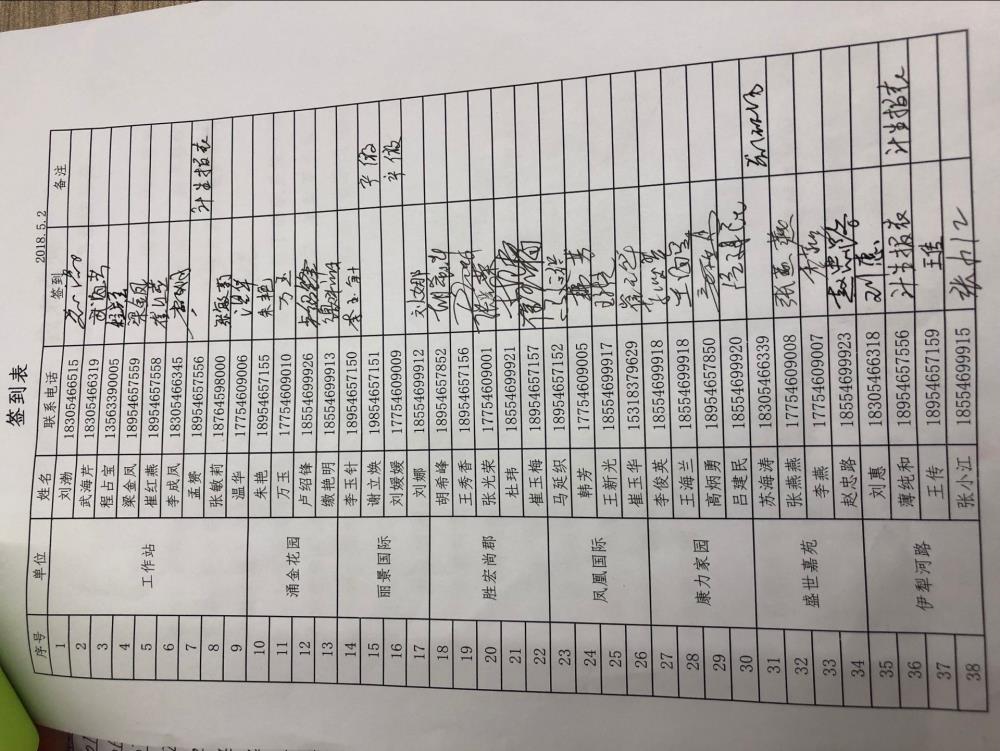 签到表
2018.5.2
序号 单位 姓名 联系电话 签到 备注
1 工作站 刘渤 18305466515
2 武海芹 18305466319 武海芹
3 程占宝 13563390005 程占宝
4 梁金凤 18954657559 梁金凤
5 崔红燕 18954657558 崔红燕
6 李成凤 18305466345
7 孟赟 18954657556 计生报表
8 张敏莉 18764598000 张敏莉
9 温华 17754609006 温华
10 涌金花园 朱艳 18954657155 朱艳
11 万玉 17754609010 万玉
12 卢绍锋 18554699926 卢绍锋
13 缴艳明 18554699913 缴艳明
14 丽景国际 李玉针 18954657150 李玉针
15 谢立焕 19854657151 平台
16 刘媛媛 17754609009
17 刘娜 18554699912 刘娜
18 胜宏尚郡 胡希峰 18954657852 胡希峰
19 王秀香 18954657156
20 张光荣 17754609001 张光荣
21 杜玮 18554699921
22 崔玉梅 18954657157 崔玉梅
23 凤凰国际 马延织 18954657152 马延织
24 韩芳 17754609005 韩芳
25 王新光 18554699917
26 崔玉华 15318379629 崔玉华
27 康力家园 李俊英 18554699918 李俊英
28 王海兰 18554699918 王海兰
29 高炳勇 18954657850
30 吕建民 18554699920 吕建民
31 盛世嘉苑 苏海涛 18305466339
32 张燕燕 17754609008 张燕燕
33 李燕 17754609007 李燕
34 赵忠路 18554699923 赵忠路
35 伊犁河路 刘惠 18305466318 刘惠
36 薄纯和 18954657556 计生报表 计生报表
37 王传 18954657159 王传
38 张小江 18554699915 张小江